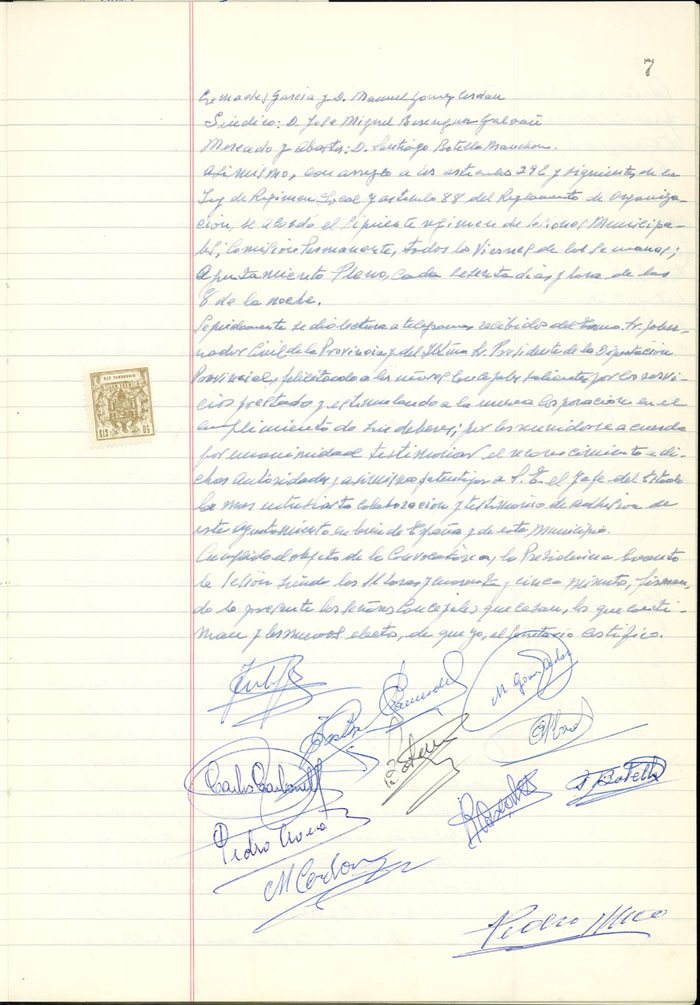 7
Cremades Garcia y D. Manuel Gomez Cerdan
Sindico: D. Jose Miguel Berenguer Galvañ
Mercado y Abastos: D. Santiago Botella Manchon
Asimismo, con arreglo a los articulos 292 y siguientes, de la
Ley de Régimen Local y articulo 88 del Reglamento de Organiza-
ción, se acordó el siguiente regimen de sesiones Municipa-
les; Comision Permanente, todos los Viernes de las semanas;
Ayuntamiento Pleno, cada setenta dias y hora de las
8 de la noche.
Seguidamente se dio lectura a telegramas recibidos del Excmo. Sr. Gober-
nador Civil de la Provincia y del Iltmo Sr. Presidente de la Diputación
Provincial, felicitando a los señores Concejales salientes por los servi-
cios prestado y estimulando a la nueva Corporación en el
cumplimiento de sus deberes; por los reunidos se acuerda
por unanimidad testimoniar el reconocimiento a di-
chas autoridades y asimismo patentizar a S.E. el Jefe del Estado
la mas entusiasta colaboracion y testimonio de adhesion de
este Ayuntamiento en bien de España y de este Municipio.
Cumplido el objeto de la Convocatoria, la Presidencia levanto
la sesión siendo las 11 horas y cuarenta y cinco minutos, firman-
do la presente los señores Concejales que cesan, los que conti-
nuan y los nuevos electos, de que yo, el secretario certifico.
M Gonzalez
Botella
Carlos Carbonell
S Botella
Pedro
M Cerdan
Pedro Mico